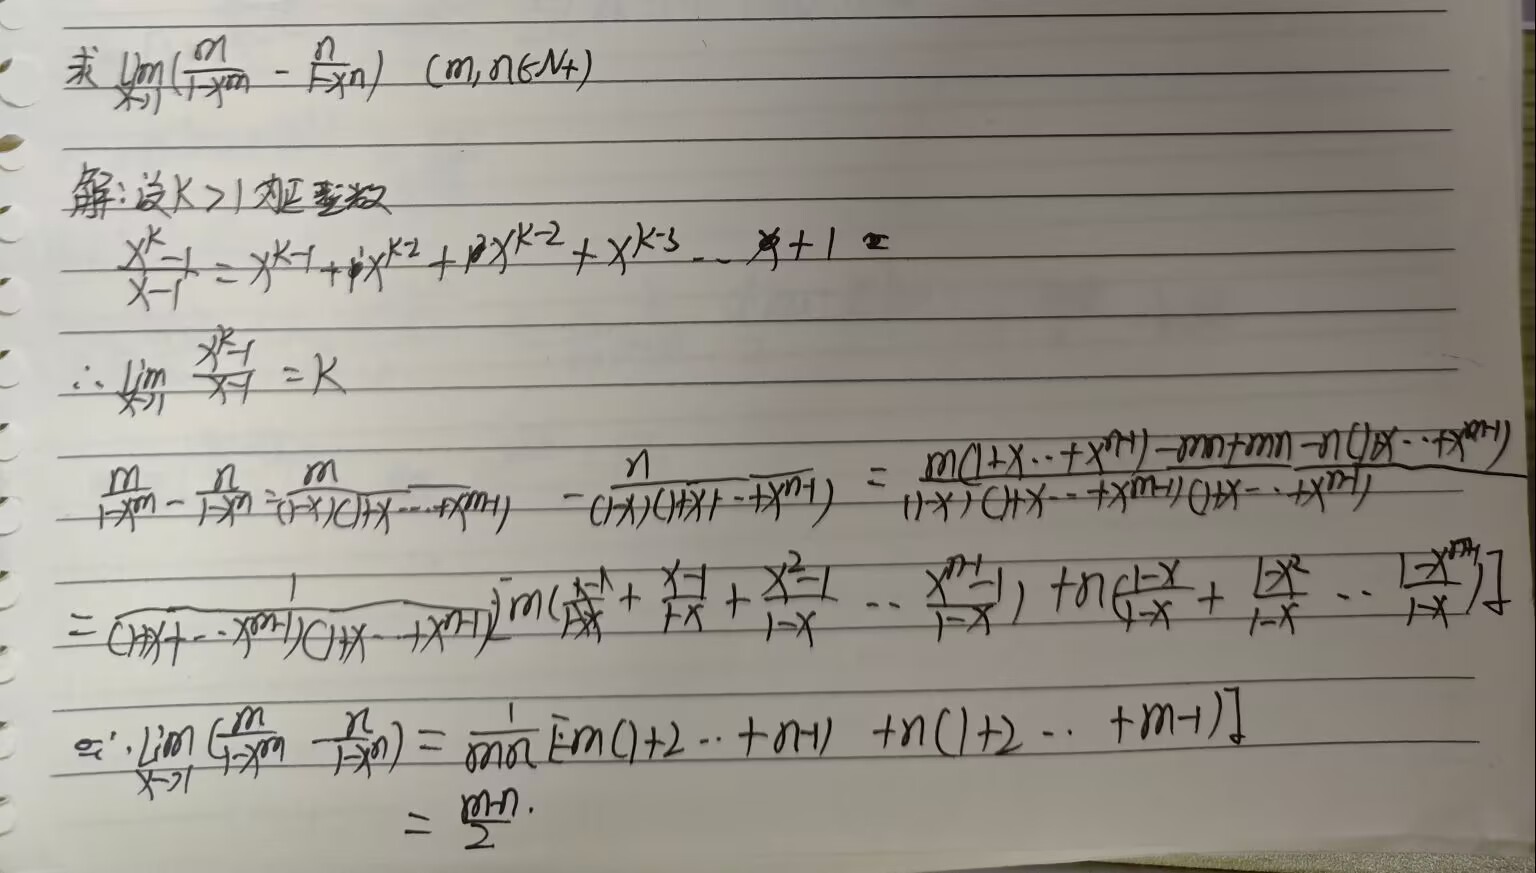 求 lim x→1 (m/(1-x^m) - n/(1-x^n)) (m,n∈N+)
解:设K>1为正整数
(x^k-1)/(x-1) = x^(k-1) + x^(k-2) + x^(k-2) + x^(k-3) ... x + 1 =
∴ lim x→1 (x^k-1)/(x-1) = K
m/(1-x^m) - n/(1-x^n) = m/((1-x)(1+x+...+x^(m-1))) - n/((1-x)(1+x+...+x^(n-1))) = (m(1+x...+x^(n-1)) - n(1+x...+x^(m-1)))/((1-x)(1+x...+x^(m-1))(1+x...+x^(n-1)))
= 1/((1+x+...x^(m-1))(1+x...+x^(n-1))) [m( + (x-1)/(1-x) + (x^2-1)/(1-x) ... (x^(n-1)-1)/(1-x)) + n((1-x)/(1-x) + (1-x^2)/(1-x) ... (1-x^(m-1))/(1-x))]
∴ lim x→1 (m/(1-x^m) - n/(1-x^n)) = 1/(mn) [-m(1+2...+n-1) + n(1+2...+m-1)]
= (m-n)/2.